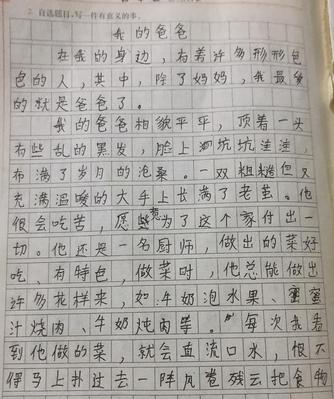 2. 自选题目，写一件有意义的事。
我的爸爸
在我的身边，有着许多形形色
色的人，其中，除了妈妈，我最爱
的就是爸爸了。
我的爸爸相貌平平，顶着一头
有些乱的黑发，脸上坑坑洼洼，
布满了岁月的沧桑。一双粗糙但又
充满温暖的大手上长满了老茧。他
很会吃苦，愿意为了这个家付出一
切。他还是一名厨师，做出的菜好
吃、有特色，做菜时，他总能做出
许多花样来，如：牛奶泡水果、蜜
汁烧肉、牛奶炖肉等。每次我看
到他做的菜，就会直流口水，恨不
得马上扑过去一阵风卷残云把食物